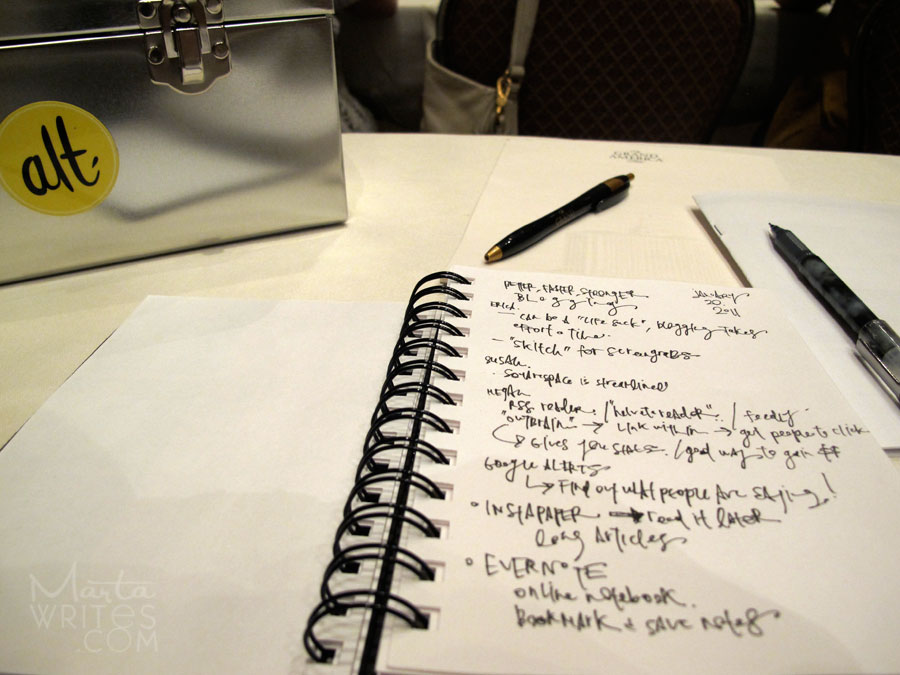 alt.
GRAND
AMERICA
BETTER, FASTER, STRONGER
BLOGGING
JANUARY
20
2011
ERICA.
- CAN BE A "LIFE SUCK", blogging takes
effort & time.
- "SKITCH" for screengrabs
SUSAN.
· SQUARESPACE is streamlined
MEGAN
RSS reader. / "helvetireader". / feedly.
"OUTBRAIN" → LINK WITHIN → get people to click
↳ & GIVES you STATS. / good way to gain $$
GOOGLE ALERTS
↳ FIND out WHAT PEOPLE ARE SAYING!
• INSTAPAPER. → read it later
long articles
• EVERNOTE
online notebook.
BOOKMARK & SAVE notes
Marta
WRITES
.COM